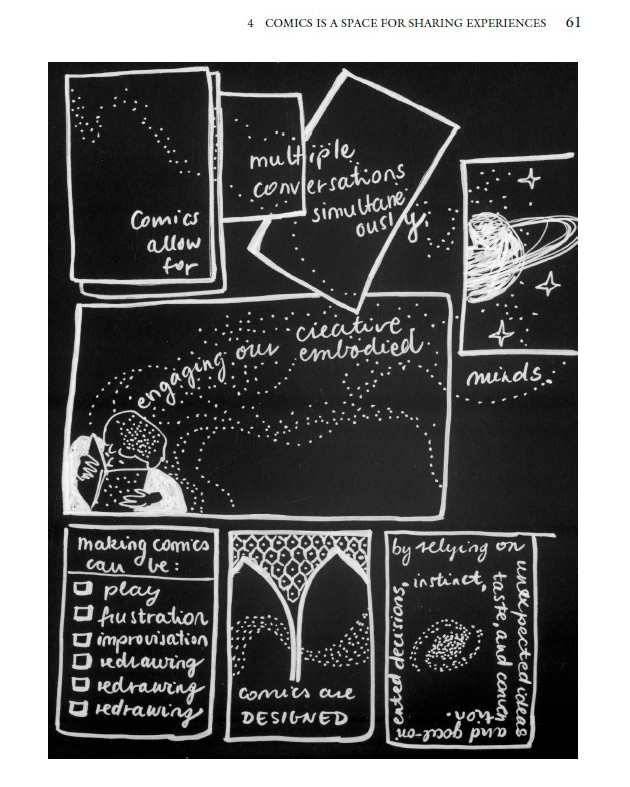 4 COMICS IS A SPACE FOR SHARING EXPERIENCES 61
Comics
allow
for
multiple
conversations
simultane
ously,
engaging our creative,
embodied
minds.
making comics
can be:
play
frustration
improvisation
redrawing
redrawing
redrawing
comics are
DESIGNED
by relying on
unexpected ideas
and goal-ori
ented decisions,
instinct,
taste, and convic
tion.